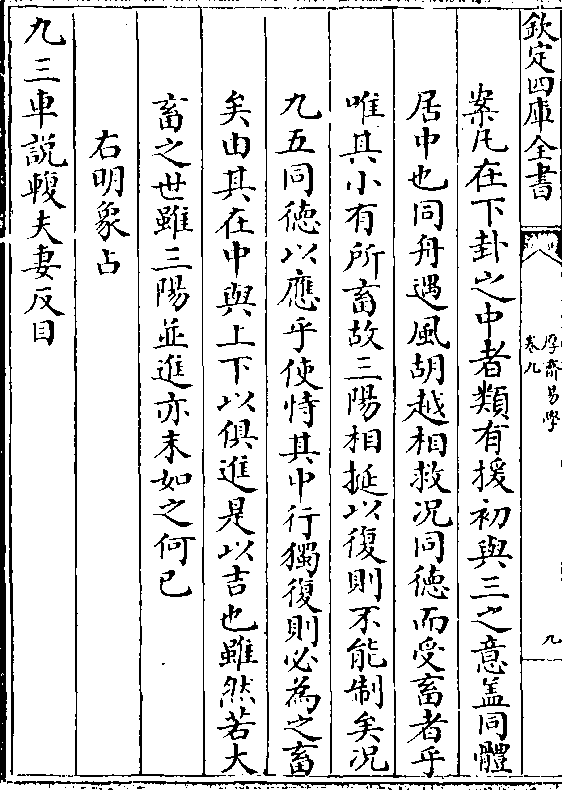 欽定四庫全書
厚齋易學
卷九
九
案凡在下卦之中者類有援初與三之意盖同體
居中也同舟遇風胡越相救况同徳而受畜者乎
唯其小有所畜故三陽相挻以復則不能制矣况
九五同徳以應乎使恃其中行獨復則必為之畜
矣由其在中與上下以俱進是以吉也雖然若大
畜之世雖三陽並進亦末如之何已
右明象占
九三車説輹夫妻反目